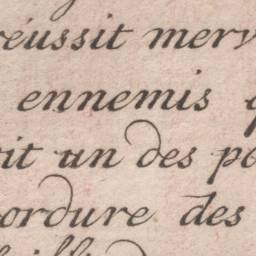 réussit merv
ennemis
it un des po
ordure des